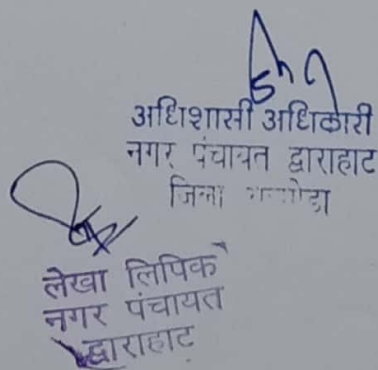 अधिशासी अधिकारी
नगर पंचायत द्वाराहाट
जिला
लेखा लिपिक
नगर पंचायत
द्वाराहाट